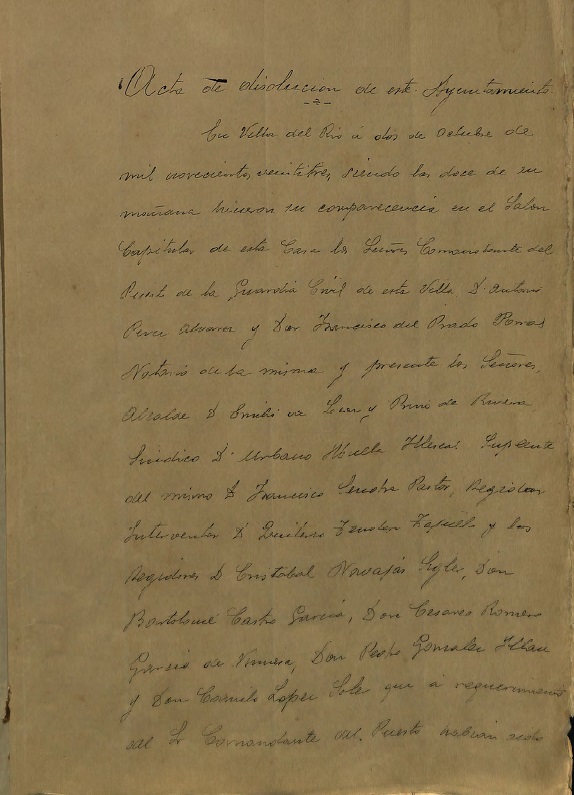 Acta de disolucion de este Ayuntamiento
En Villa del Rio á dos de Octubre de
mil novecientos veintitres, siendo las doce de su
mañana hicieron su comparecencia en el Salon
Capitular de esta Casa los Señores Comandante del
Puesto de la Guardia Civil de esta Villa D. Antonio
Perez Alvarez y Don Francisco del Prado
Notario de la misma y presente los Señores,
Alcalde D Emilio de Leon y Primo de Rivera
Sindico D. Urbano Illescas Suplente
del mismo D Francisco Pastor, Regidor
Interventor D y los
Regidores D Cristobal Navajas Don
Bartolomé Castro Garcia, Don Cesareo Romero
Garcia de Don Pedro Gonzalez
y Don Lopez que á requerimiento
del Sr Comandante del Puesto habian sido